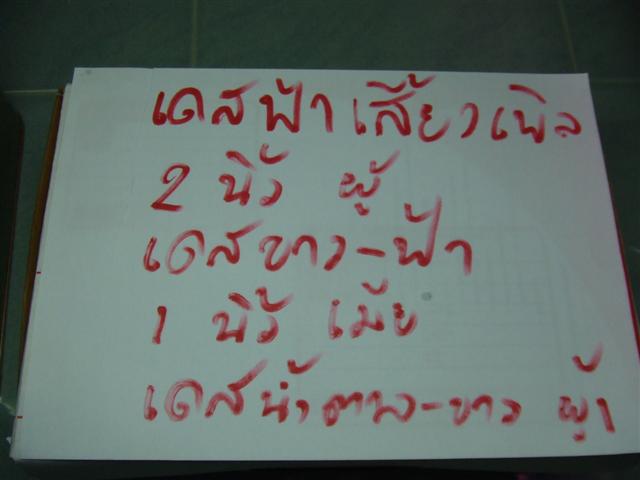 เดสฟ้าเสี้ยวเพิล
2 นิ้ว ผู้
เดสขาว-ฟ้า
1 นิ้ว เมีย
เดสน้ำตาล-ขาว ผู้